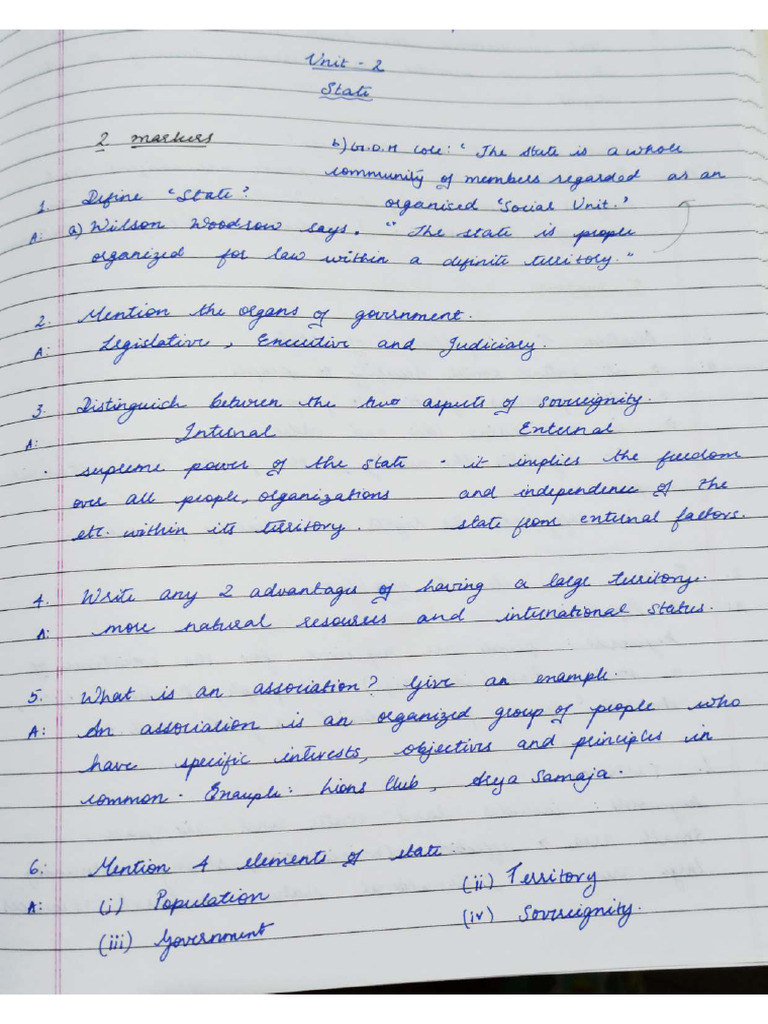 Unit - 2
State
2 markers
1. Define "State"?
A: a) Wilson Woodrow says. "The state is people
organized for law within a definite territory."
b) G.D.H Cole: "The state is a whole
community of members regarded as an
organised 'Social Unit.'
2. Mention the organs of government.
A: Legislative, Executive and Judiciary.
3. Distinguish between the two aspects of sovereignity.
A: Internal External
. supreme power of the state
over all people, organizations
etc. within its territory.
- it implies the freedom
and independence of the
state from external factors.
4. Write any 2 advantages of having a large territory.
A: more natural resources and international status.
5. What is an association? Give an example.
A: An association is an organized group of people who
have specific interests, objectives and principles in
common. Example: Lions Club, Arya Samaja.
6. Mention 4 elements of state.
A: (i) Population (ii) Territory
(iii) Government (iv) Sovereignity.